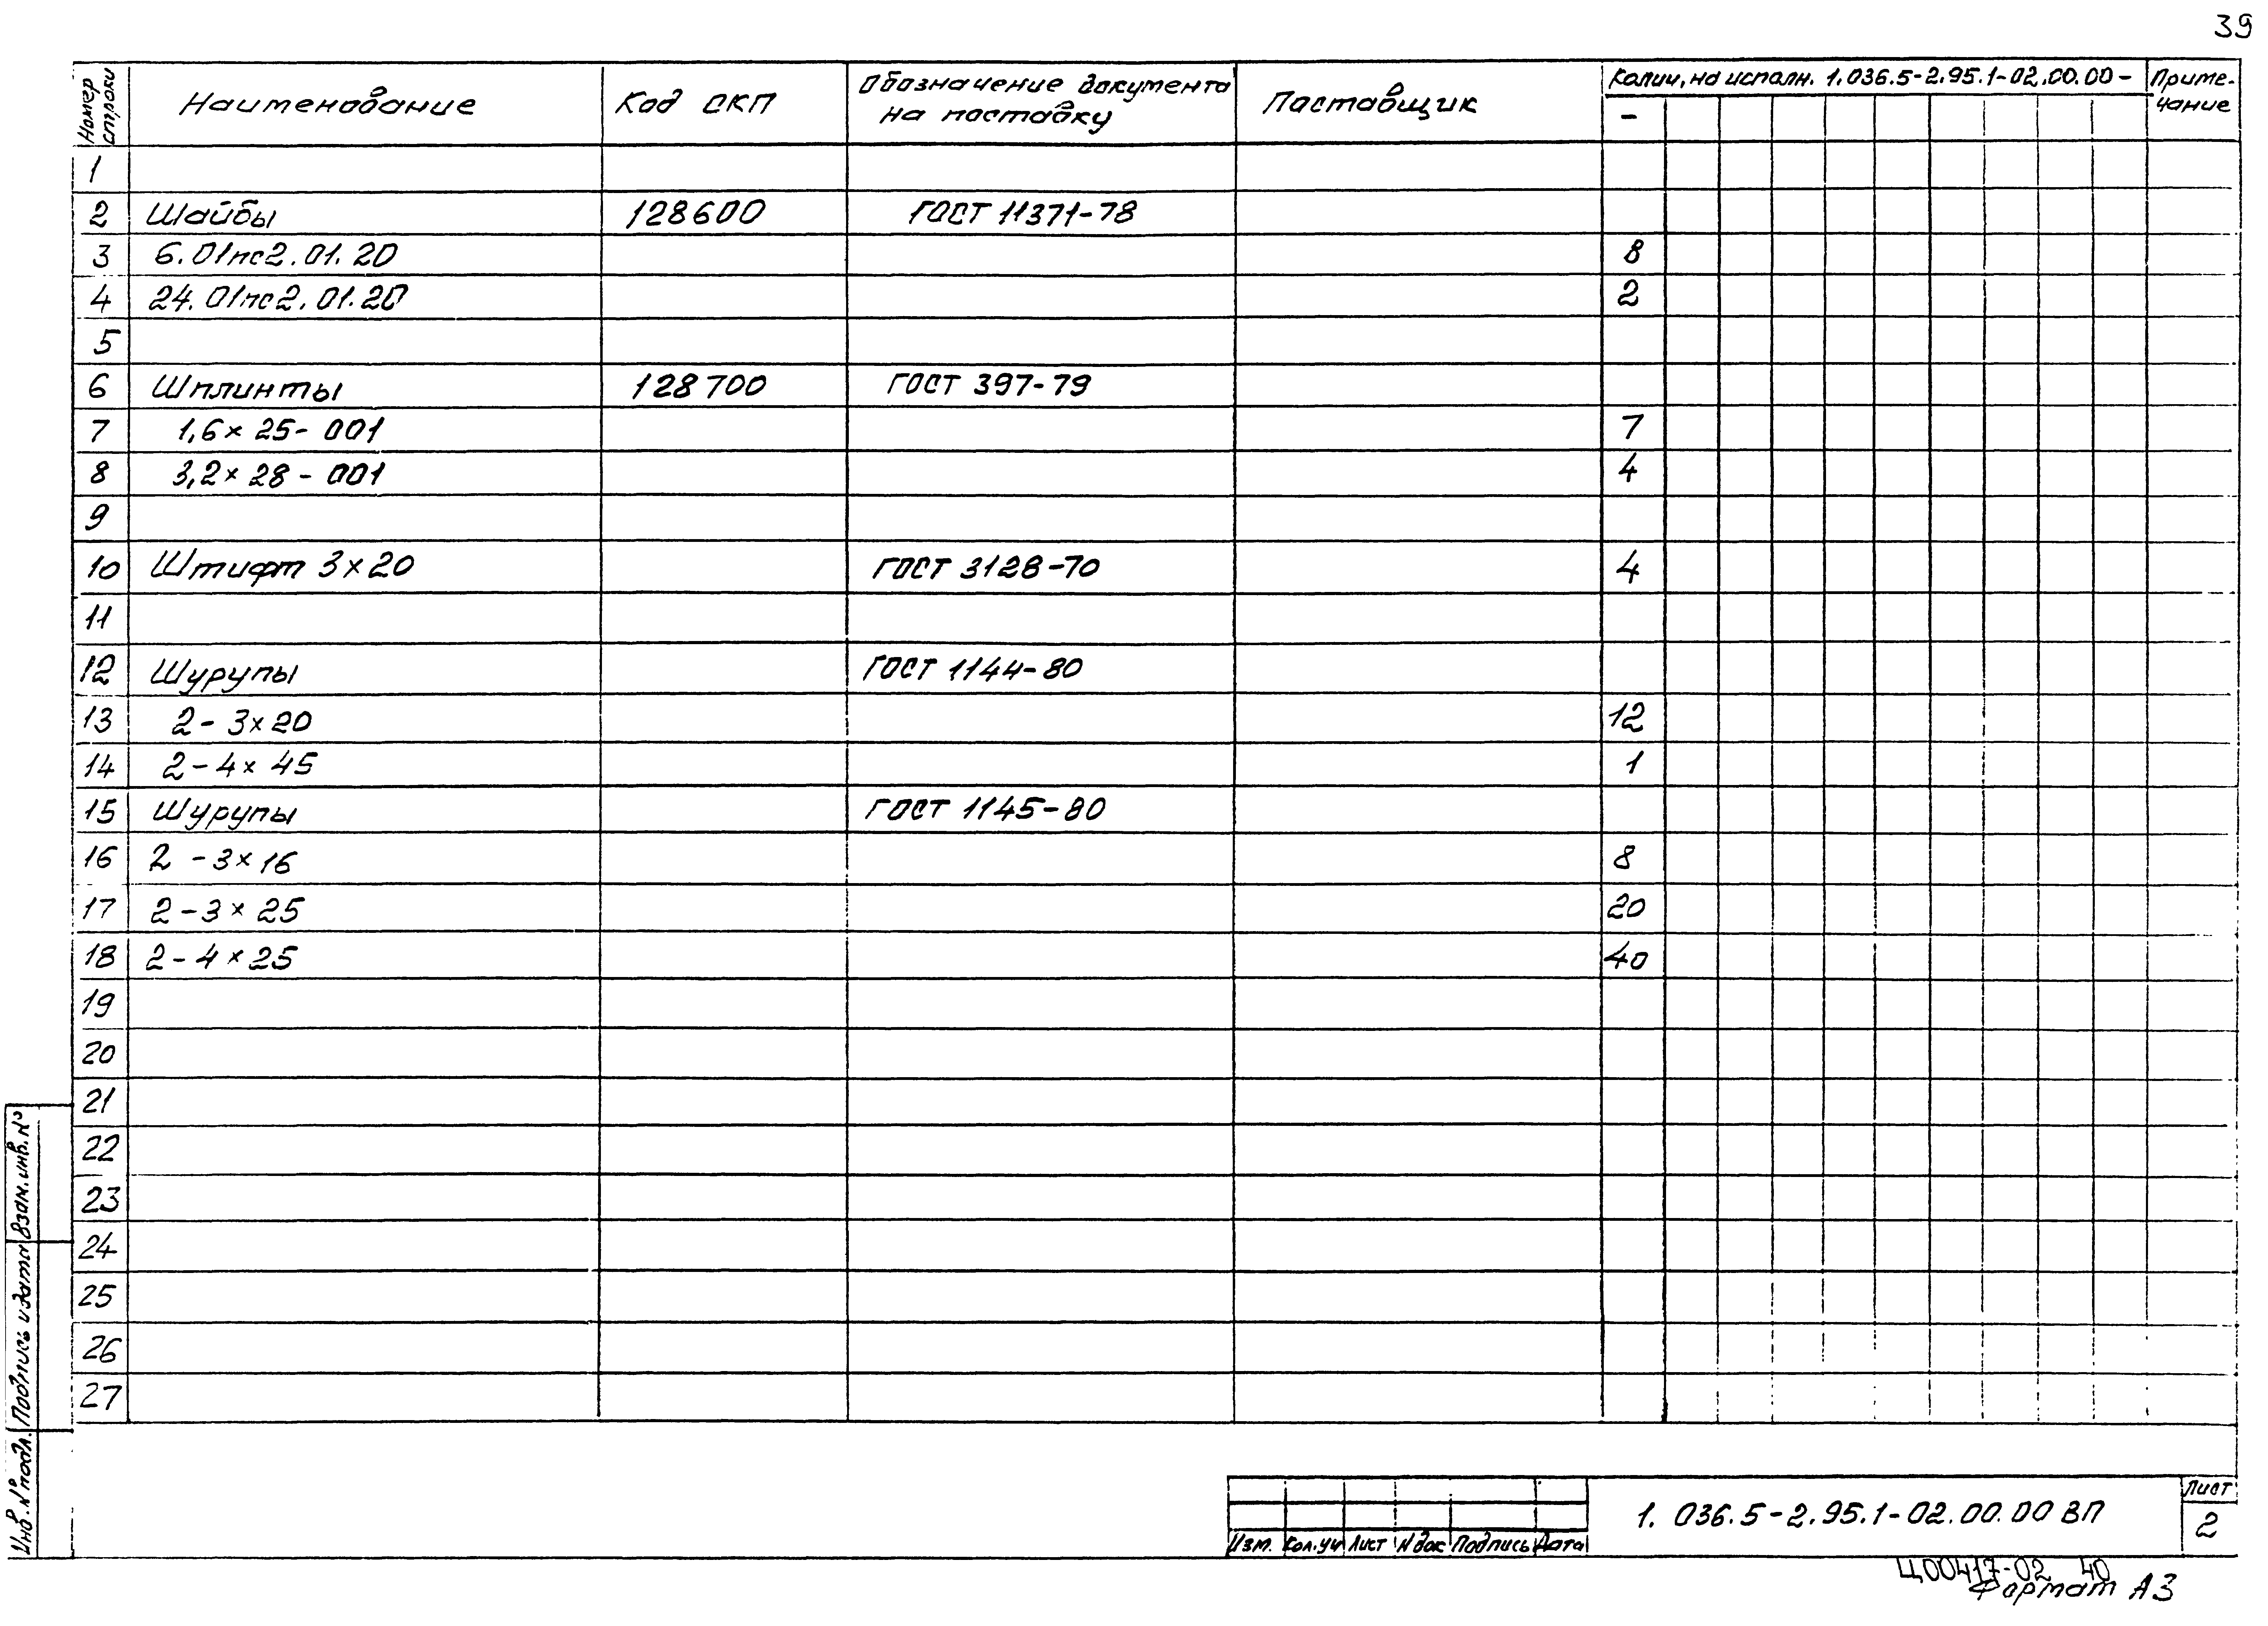 39
Номер строки Наименование Код ОКП Обозначение документа на поставку Поставщик Колич. на исполн. 1.036.5-2.95.1-02.00.00- Приме-чание
-
1
2 Шайбы 128600 ГОСТ 11371-78
3 6.01пс2.01.20 8
4 24.01пс2.01.20 2
5
6 Шплинты 128700 ГОСТ 397-79
7 1,6×25-001 7
8 3,2×28-001 4
9
10 Штифт 3×20 ГОСТ 3128-70 4
11
12 Шурупы ГОСТ 1144-80
13 2-3×20 12
14 2-4×45 1
15 Шурупы ГОСТ 1145-80
16 2-3×16 8
17 2-3×25 20
18 2-4×25 40
19
20
21
22
23
24
25
26
27
Взам. инв. №
Подпись и дата
Инв. № подл.
Изм. Кол.уч Лист N док Подпись Дата
1.036.5-2.95.1-02.00.00 ВП
Лист
2
Ц00417-02 40
Формат А3